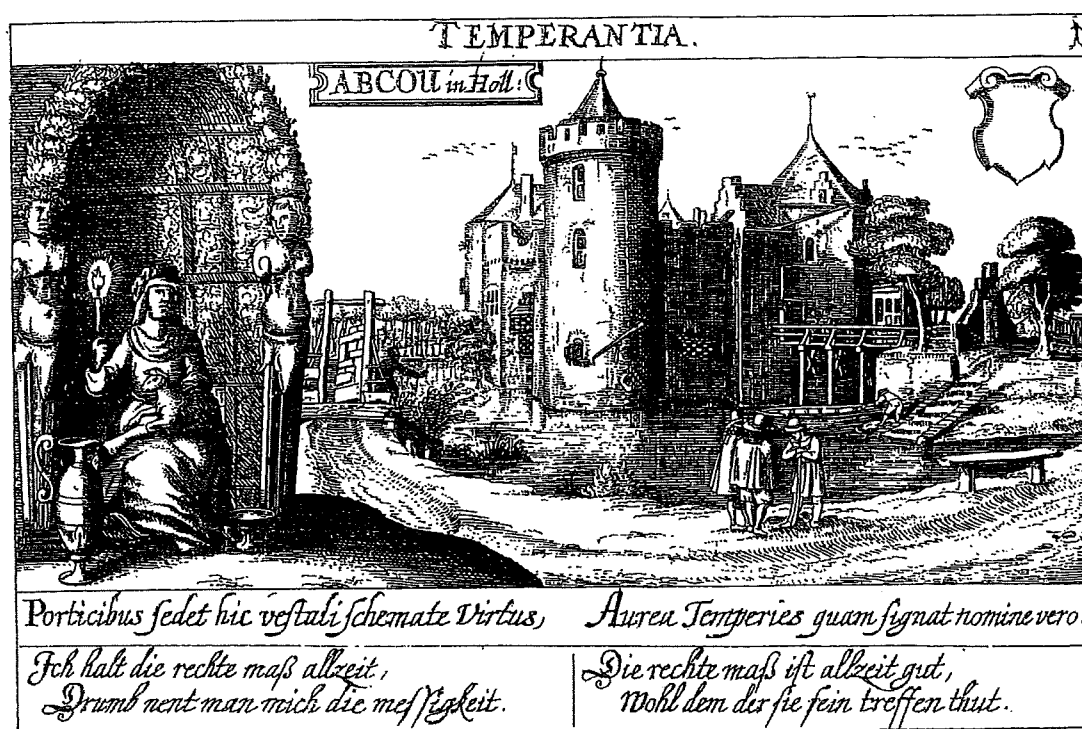 TEMPERANTIA.
ABCOU in Holl:
Porticibus ſedet hic veſtali ſchemate Virtus, Aurea Temperies quam ſignat nomine vero.
Ich halt die rechte maß allzeit,
Drumb nent man mich die meſſigkeit.
Die rechte maß iſt allzeit gut,
Wohl dem der ſie fein treffen thut.